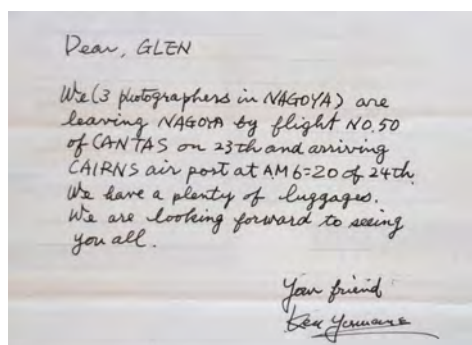 Dear, GLEN
We (3 photographers in NAGOYA) are
leaving NAGOYA by flight NO.50
of CANTAS on 23th and arriving
CAIRNS air port at AM 6=20 of 24th.
We have a plenty of luggages.
We are looking forward to seeing
you all.
Your friend
Ken